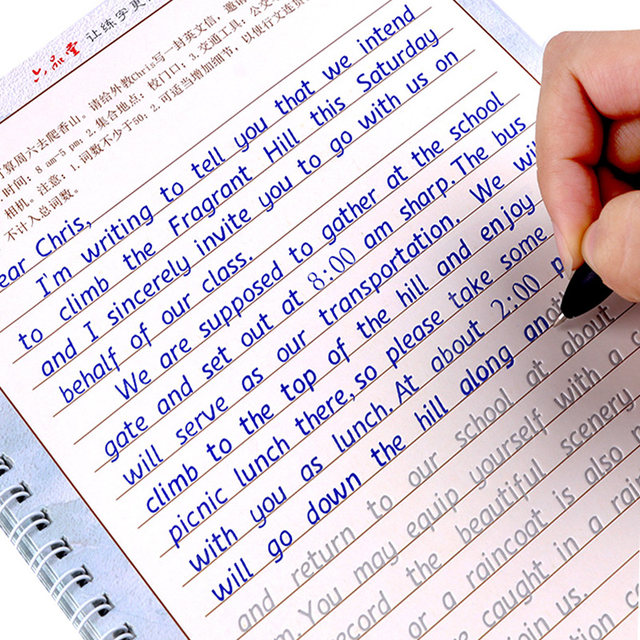 六品堂 让练字更
算周六去爬香山。请给外教Chris写一封英文信,邀请
时间,8 am-5 pm;2.集合地点,校门口;3.交通工具:公交
相机。注意:1.词数不少于50;2.可适当增加细节,以使行文连贯
不计入总词数。
ear Chris,
I'm writing to tell you that we intend
to climb the Fragrant Hill this Saturday
and I sincerely invite you to go with us on
behalf of our class.
We are supposed to gather at the school
gate and set out at 8:00 am sharp. The bus
will serve as our transportation. We wil
climb to the top of the hill and enjoy
picnic lunch there, so please take some
with you as lunch. At about 2:00 p
will go down the hill along ano
and return to our school at about
m. You may equip yourself with a c
ecord the beautiful scenery
or a raincoat is also
e caught in a rain
join us.